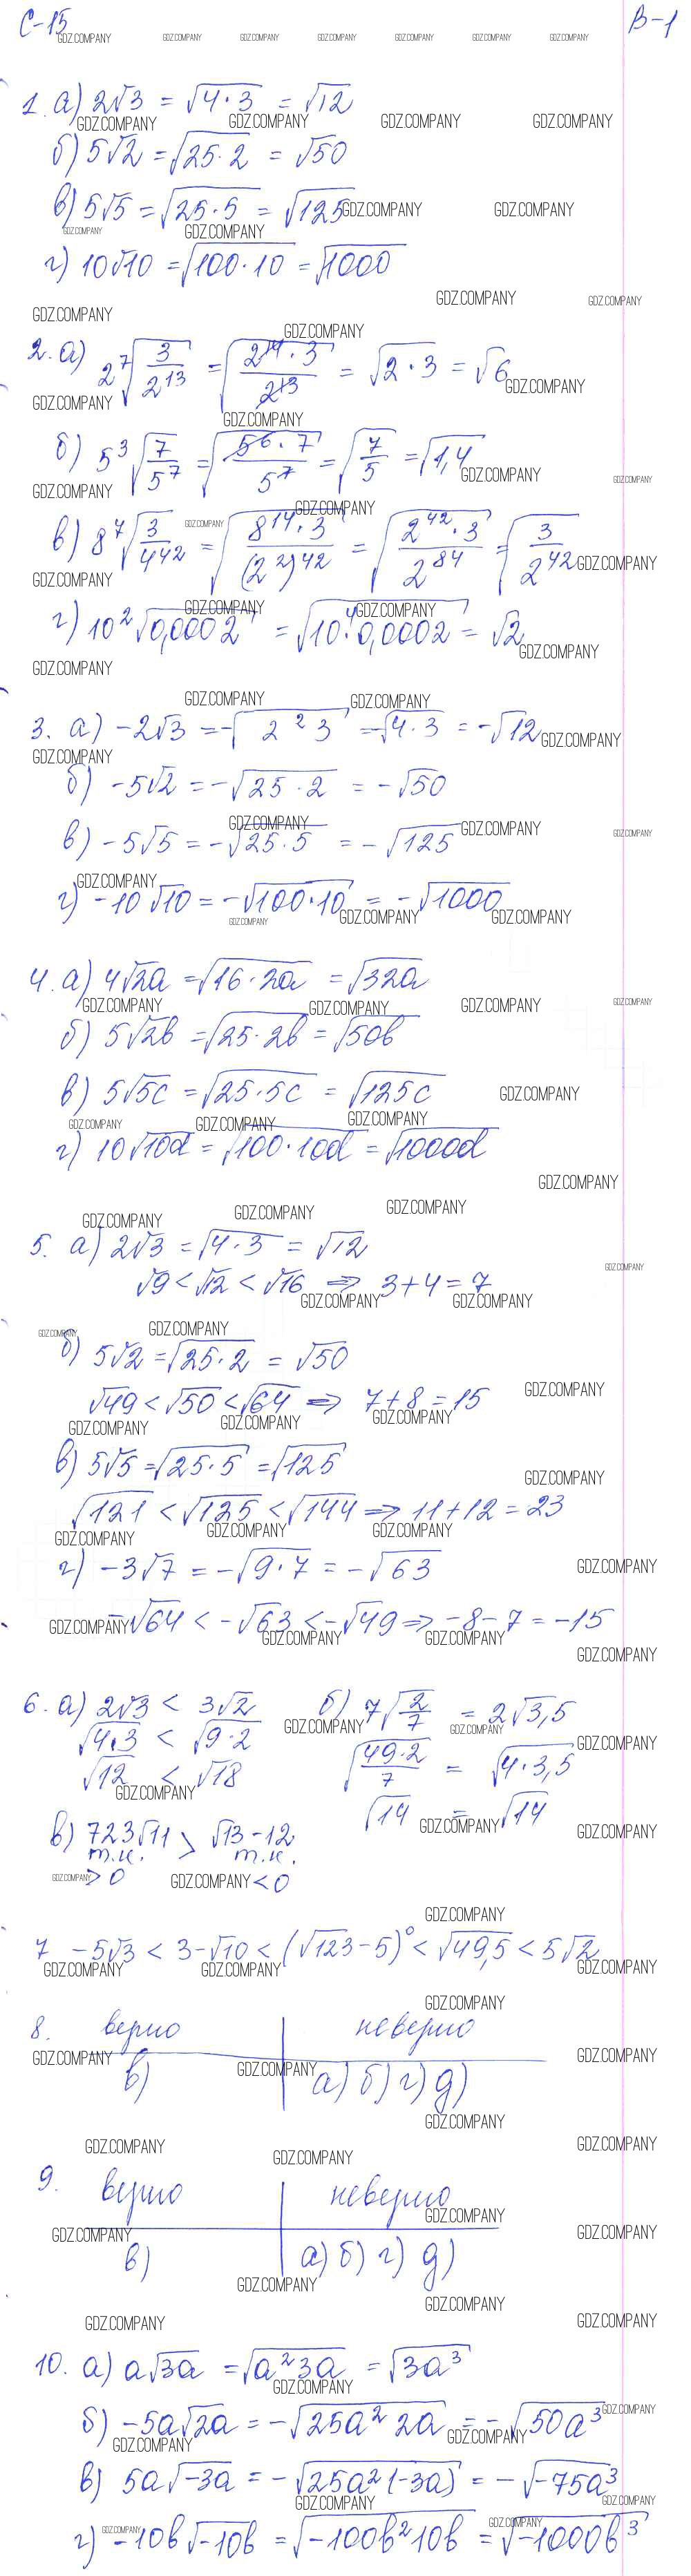 С-15 В-1
GDZ.COMPANY
1. а) 2√3 = √(4·3) = √12
б) 5√2 = √(25·2) = √50
в) 5√5 = √(25·5) = √125
г) 10√10 = √(100·10) = √1000
2. а) 2⁷√(3/2¹³) = √(2¹⁴·3/2¹³) = √(2·3) = √6
б) 5³√(7/5⁷) = √(5⁶·7/5⁷) = √(7/5) = √1,4
в) 8⁷√(3/4⁴²) = √(8¹⁴·3/(2²)⁴²) = √(2⁴²·3/2⁸⁴) = √(3/2⁴²)
г) 10²√0,0002 = √(10⁴·0,0002) = √2
3. а) -2√3 = -√(2² 3) = -√(4·3) = -√12
б) -5√2 = -√(25·2) = -√50
в) -5√5 = -√(25·5) = -√125
г) -10√10 = -√(100·10) = -√1000
4. а) 4√2a = √(16·2a) = √32a
б) 5√2b = √(25·2b) = √50b
в) 5√5c = √(25·5c) = √125c
г) 10√10d = √(100·10d) = √1000d
5. а) 2√3 = √(4·3) = √12
√9 < √12 < √16 ⇒ 3+4=7
б) 5√2 = √(25·2) = √50
√49 < √50 < √64 ⇒ 7+8=15
в) 5√5 = √(25·5) = √125
√121 < √125 < √144 ⇒ 11+12=23
г) -3√7 = -√(9·7) = -√63
-√64 < -√63 < -√49 ⇒ -8-7=-15
6. а) 2√3 < 3√2 б) 7√(2/7) = 2√3,5
√(4·3) < √(9·2) √(49·2/7) = √(4·3,5)
√12 < √18 √14 = √14
в) 723√11 > √13-12
т.к. т.к.
>0 <0
7 -5√3 < 3-√10 < (√123-5)⁰ < √49,5 < 5√2
8. верно неверно
в) а) б) г) д)
9. верно неверно
в) а) б) г) д)
10. а) a√3a = √(a² 3a) = √3a³
б) -5a√2a = -√(25a² 2a) = -√50a³
в) 5a√-3a = -√(25a²(-3a)) = -√-75a³
г) -10b√-10b = √(-100b² 10b) = √-1000b³